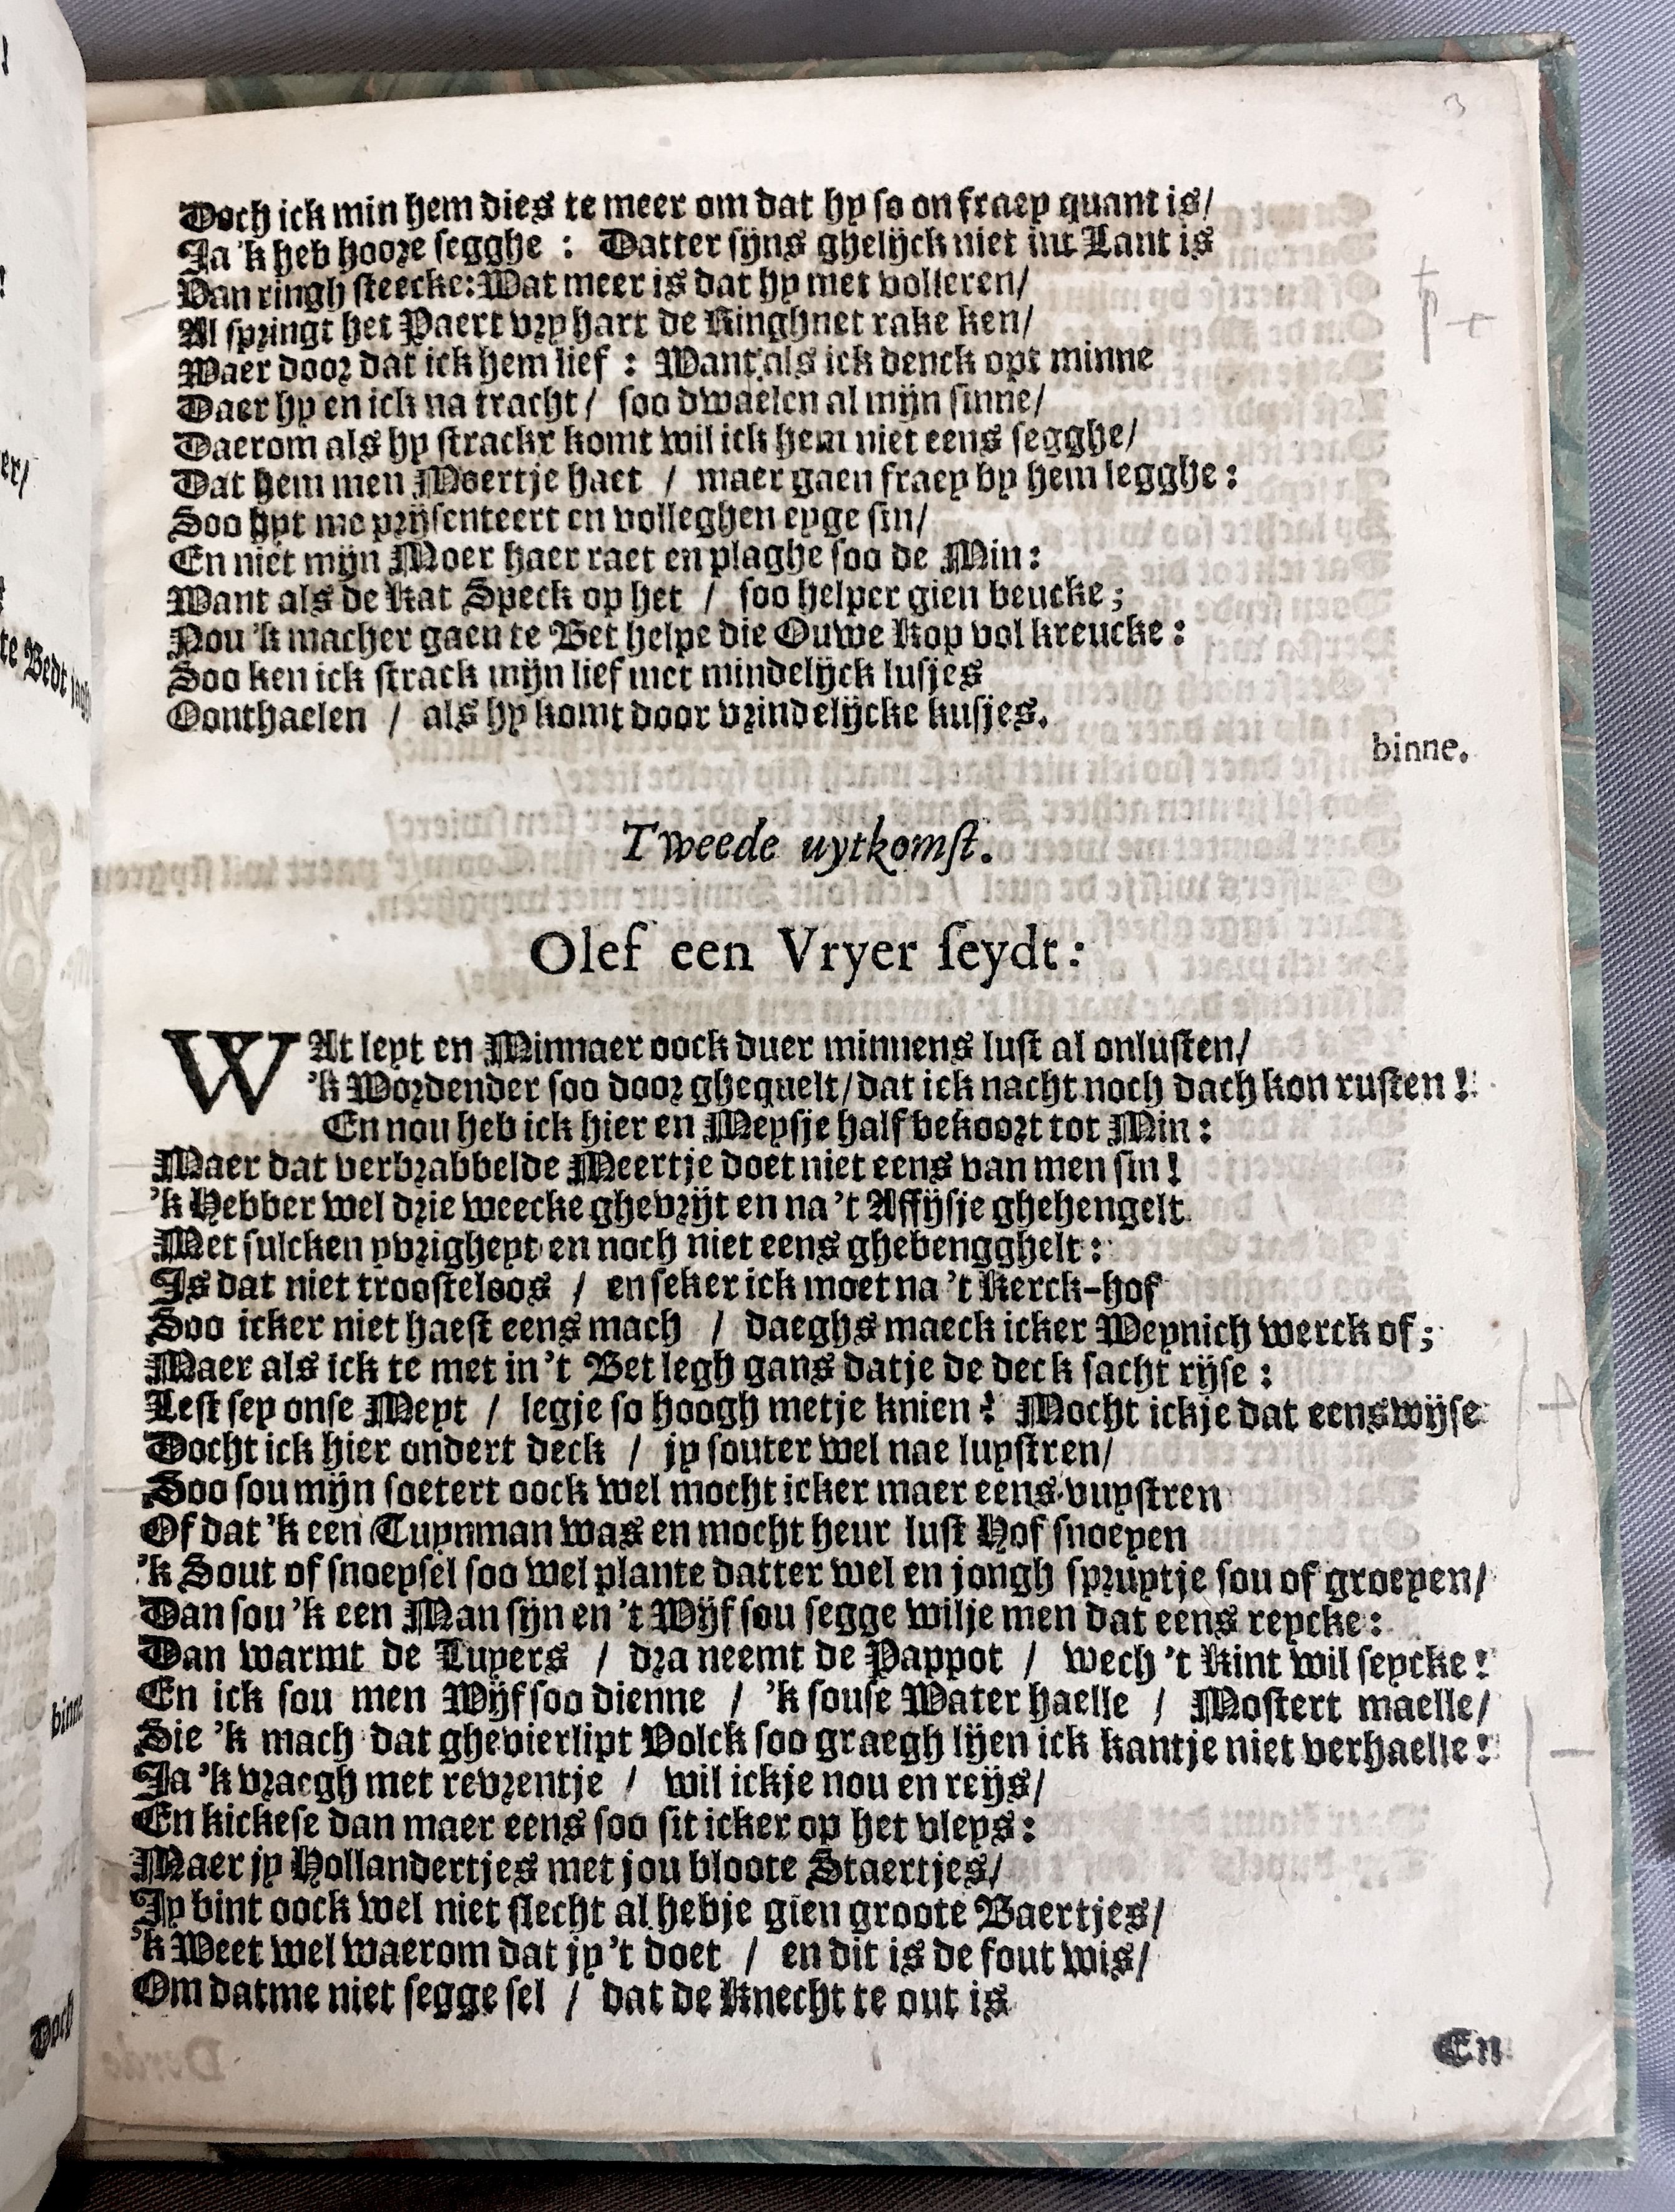 Doch ick min hem dies te meer om dat hy so on fraey quant is/
Ja 'k heb hoore segghe : Datter sijns ghelijck niet int Lant is
Van ringh steecke: Wat meer is dat hy met volleren/
Al springt het Paert vry hart de Ringh net rake ken/
Waer door dat ick hem lief : Want als ick denck opt minne
Daer hy en ick na tracht / soo dwaelen al mijn sinne/
Daerom als hy strackx komt wil ick hem niet eens segghe/
Dat hem men Moertje haet / maer gaen fraey by hem legghe :
Soo hyt me prijsenteert en volleghen eyge sin/
En niet mijn Moer haer raet en plaghe soo de Min :
Want als de Kat Speck op het / soo helper gien beucke ;
Nou 'k macher gaen te Bet helpe die Ouwe Kop vol kreucke :
Soo ken ick strack mijn lief met mindelijck lusjes
Oonthaelen / als hy komt door vrindelijcke kusjes.
binne.
Tweede uytkomst.
Olef een Vryer seydt :
WAt leyt en Minnaer oock duer minnens lust al onlusten/
'k Wordender soo door ghequelt/ dat ick nacht noch dach kon rusten !
En nou heb ick hier en Meysje half bekoort tot Min :
Maer dat verbrabbelde Meertje doet niet eens van men sin !
'k Hebber wel drie weecke ghevrijt en na 't Affijsje ghehengelt
Met sulcken yvrigheyt en noch niet eens ghebengghelt :
Is dat niet troosteloos / en seker ick moet na 't Kerck-hof
Soo icker niet haest eens mach / daeghs maeck icker Weynich werck of ;
Maer als ick te met in 't Bet legh gans datje de deck sacht rijse :
Lest sey onse Meyt / legje so hoogh metje knien ? Mocht ickje dat eens wijse
Docht ick hier ondert deck / jy souter wel nae luystren/
Soo sou mijn soetert oock wel mocht icker maer eens vuystren
Of dat 'k een Tuynman was en mocht heur lust Hof snoeyen
'k Sout of snoeysel soo wel plante datter wel en jongh spruytje sou of groeyen/
Dan sou 'k een Man sijn en 't Wijf sou segge wilje men dat eens reycke :
Dan warmt de Luyers / dra neemt de Pappot / wech 't Kint wil seycke !
En ick sou men Wijf soo dienne / 'k souse Water haelle / Mostert maelle/
Sie 'k mach dat ghevierlipt Volck soo graegh lijen ick kantje niet verhaelle !
Ja 'k vraegh met revrentje / wil ickje nou en reijs/
En kickese dan maer eens soo sit icker op het vleys :
Maer jy Hollandertjes met jou bloote Staertjes/
Jy bint oock wel niet slecht al hebje gien groote Baertjes/
'k Weet wel waerom dat jy 't doet / en dit is de fout wis/
Om datme niet segge sel / dat de Knecht te out is
En